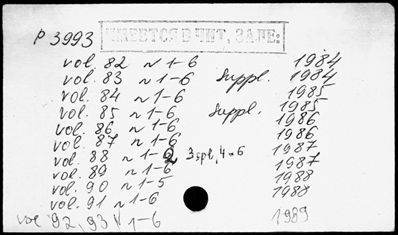 P 3993 ИМЕЕТСЯ В ЧИТ, ЗАЛЕ:
vol. 82 n 1-6 1984
vol. 83 n 1-6 Suppl. 1984
vol. 84 n 1-6 1985
vol. 85 n 1-6 Suppl. 1985
vol. 86 n 1-6 1986
vol. 87 n 1-6 1986
vol. 88 n 1-2 3 spl, 4-6 1987
vol. 89 n 1-6 1987
vol. 90 n 1-5 1988
vol. 91 n 1-6 1988
vol 92, 93 N 1-6 1989